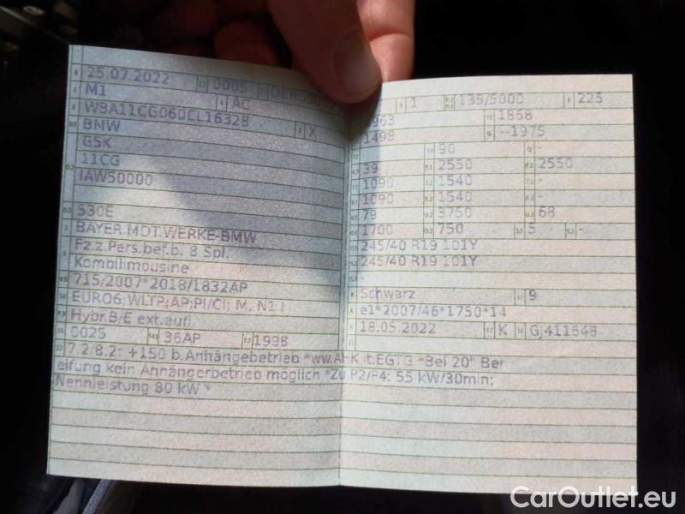 25.07.2022 0005
M1 AC
WBA11CG060CL16328 X
BMW
G5K
11CG
IAW50000
530E
BAYER.MOT.WERKE-BMW
Fz.z.Pers.bef.b. 8 Spl.
Kombilimousine
715/2007*2018/1832AP
EURO6;WLTP;AP;PI/CI; M, N1 I
Hybr.B/E ext.aufl
0025 36AP 1998
1 135/5000 225
4963 1868
1498 --1975
90 -
39 2550 2550
1090 1540 -
1090 1540 -
79 3750 68
1700 750 5 -
245/40 R19 101Y
245/40 R19 101Y
-
Schwarz 9
e1*2007/46*1750*14
18.05.2022 K GJ411648
7.2-8.2: +150 b.Anhängebetrieb *ww.AHK lt.EGTG *Bei 20" Ber
eifung kein Anhängerbetrieb möglich *Zu P2/P4: 55 kW/30min;
Nennleistung 80 kW *
CarOutlet.eu